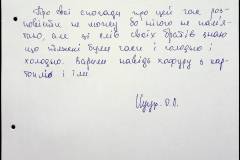 Про всі спогади про цей час роз-
повісти не можу бо нічого не пам'я-
таю, але зі слів своїх братів знаю
що тяжкі були часи і голодно і
холодно. Варили навіть кафуру з кар-
топлі і їли
Щур. О.П.